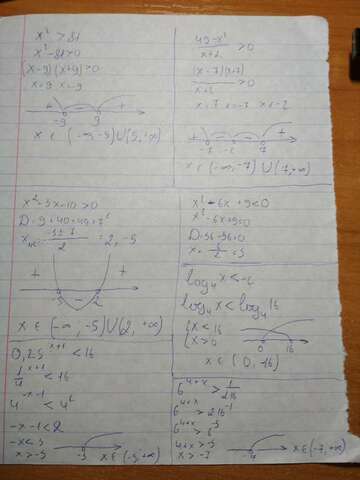 x² > 81
x² - 81 > 0
(x-9)(x+9) > 0
x=9 x=-9
+ - +
-9 9
x ∈ (-∞; -9) ∪ (9; +∞)
49-x²
x+2
> 0
(x-7)(x+7)
x+2
> 0
x=7 x=-7 x≠-2
-7 -2 7
x ∈ (-∞; -7) ∪ (7; +∞)
x²-3x-10>0
D=9+40=49=7²
2
= 2, -5
+ +
-5 - 2
x ∈ (-∞; -5) ∪ (2; +∞)
x²-6x+9<0
x²-6x+9=0
D=36-36=0
x = 6/2 = 3
log₄ x <
log₄ x < log₄ 16
{ x < 16
{ x > 0
0 16
x ∈ (0; 16)
0,25ˣ⁺¹ < 16
1/4 ˣ⁺¹ < 16
4⁻ˣ⁻¹ < 4²
-x-1<2
-x<3
x>-3
-3
x ∈ (-3; +∞)
6⁴⁺ˣ > 1/216
6⁴⁺ˣ > 216⁻¹
6⁴⁺ˣ > 6⁻³
4+x>-3
x>-7
x ∈ (-7; +∞)